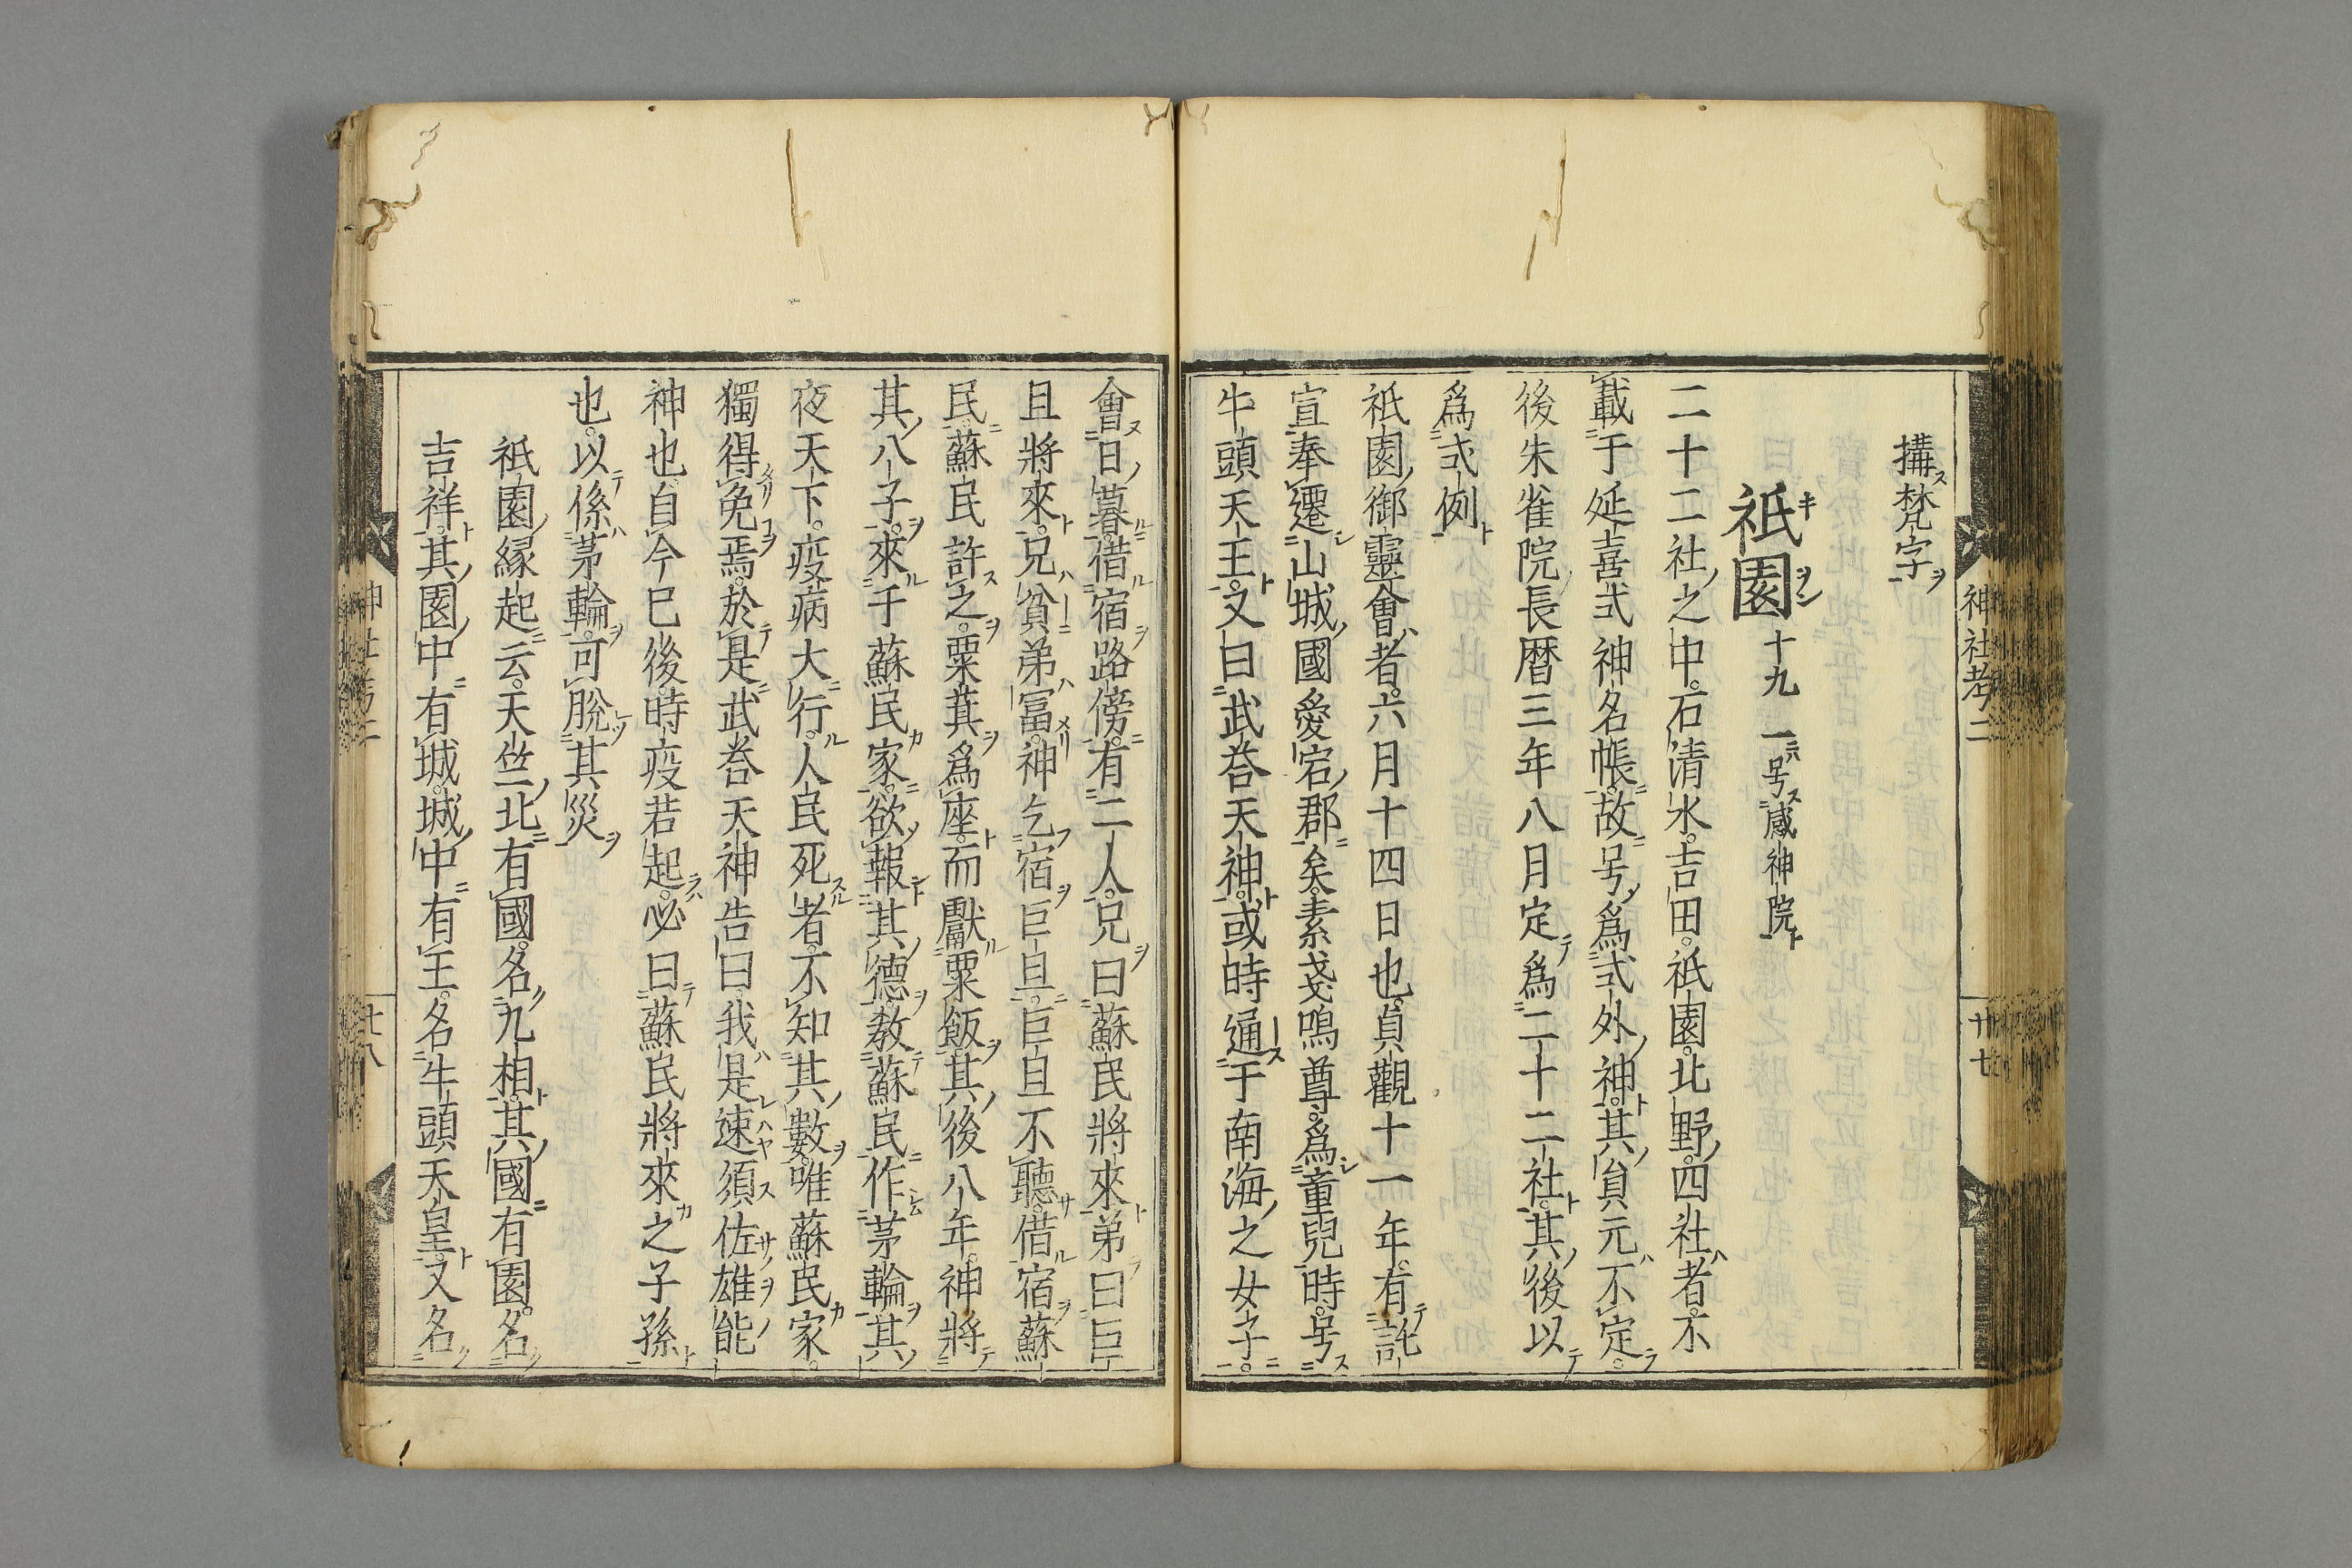 神社考二
卅七
搆梵字
祇園 十九 一号感神院
二十二社之中石清水吉田祇園北野四社者不
載于延喜式神名帳故号爲式外神其員元不定
後朱雀院長曆三年八月定爲二十二社其後以
爲式例
祇園御靈會者六月十四日也貞觀十一年有託
宣奉遷山城國愛宕郡矣素戔嗚尊爲童兒時号
牛頭天王又曰武荅天神或時通于南海之女子
會日暮借宿路傍有二人兄曰蘇民將來弟曰巨
且將來兄貧弟冨神乞宿巨且巨且不聽借宿蘇
民蘇民許之粟萁爲座而獻粟飯其後八年神將
其八子來于蘇民家欲報其德教蘇民作茅輪其
夜天下疫病大行人民死者不知其數唯蘇民家
獨得免焉於是武荅天神告曰我是速須佐雄能
神也自今巳後時疫若起必曰蘇民將來之子孫
也以係茅輪可脫其災
祇園緣起云天竺北有國名九相其國有園名
吉祥其園中有城城中有王名牛頭天皇又名
神社考二
廿八